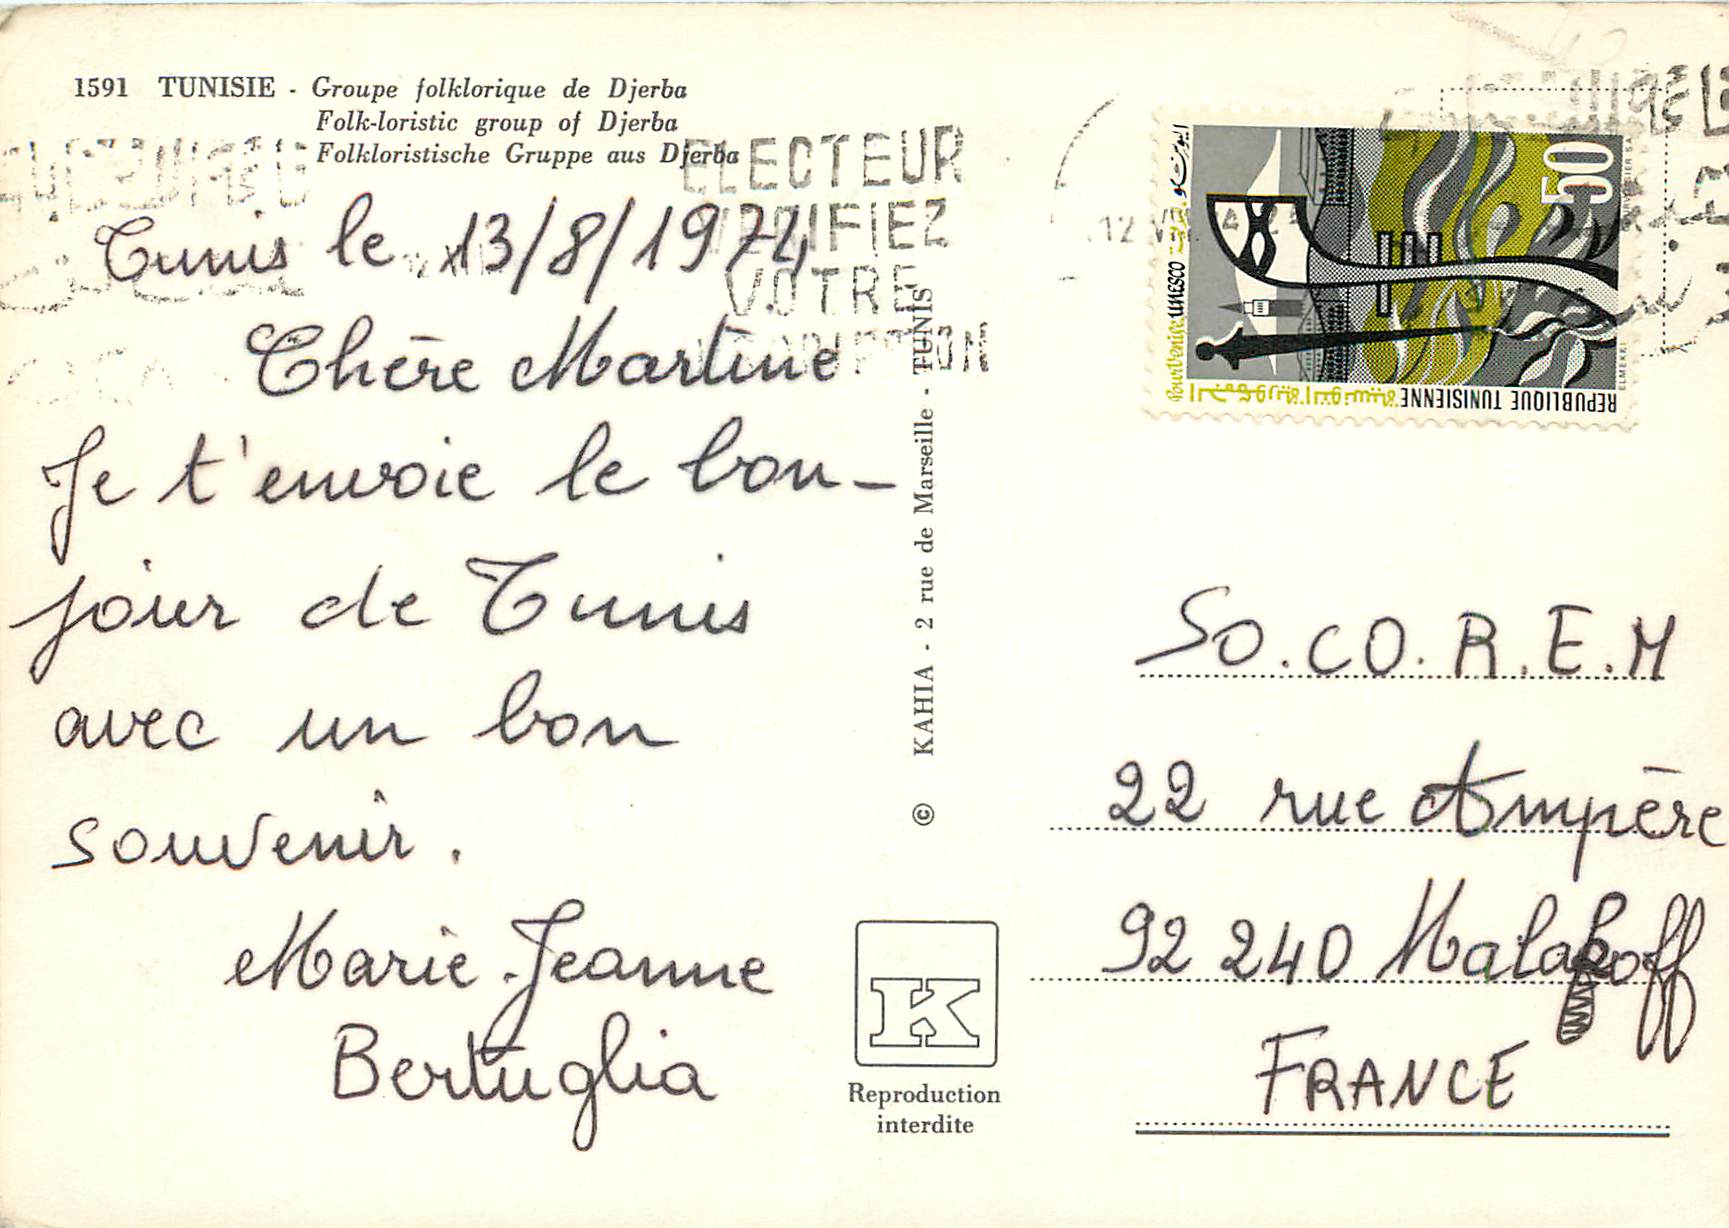 1591 TUNISIE - Groupe folklorique de Djerba
Folk-loristic group of Djerba
Folkloristische Gruppe aus Djerba
ELECTEUR
VERIFIEZ
VOTRE
INSCRIPTION
Tunis le 13/8/1974
Chère Martine
Je t'envoie le bon-
jour de Tunis
avec un bon
souvenir.
Marie-Jeanne
Bertuglia
© KAHIA - 2 rue de Marseille - TUNIS
K
Reproduction
interdite
50
Pour Venise UNESCO
REPUBLIQUE TUNISIENNE
الجمهورية التونسية
ELMEKKI
SO.CO.R.E.M
22 rue Ampère
92240 Malakoff
FRANCE